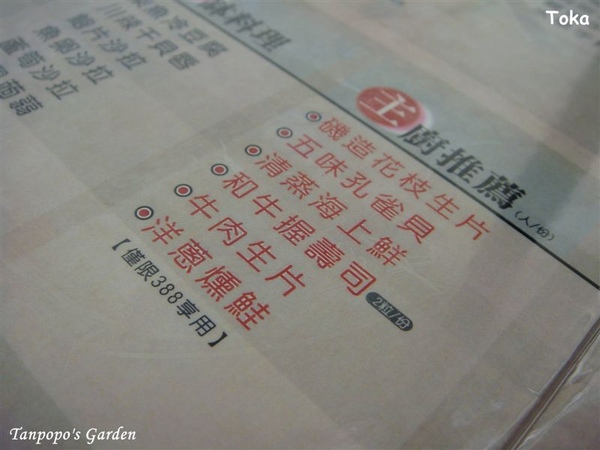 Toka
料理
冷豆腐
川燙干貝唇
蝦片沙拉
魚卵沙拉
蕃茄沙拉
主廚推薦(人/份)
磯造花枝生片
五味孔雀貝
清蒸海上鮮
和牛握壽司 2粒/份
牛肉生片
洋蔥燻鮭
【僅限388享用】
Tanpopo's Garden